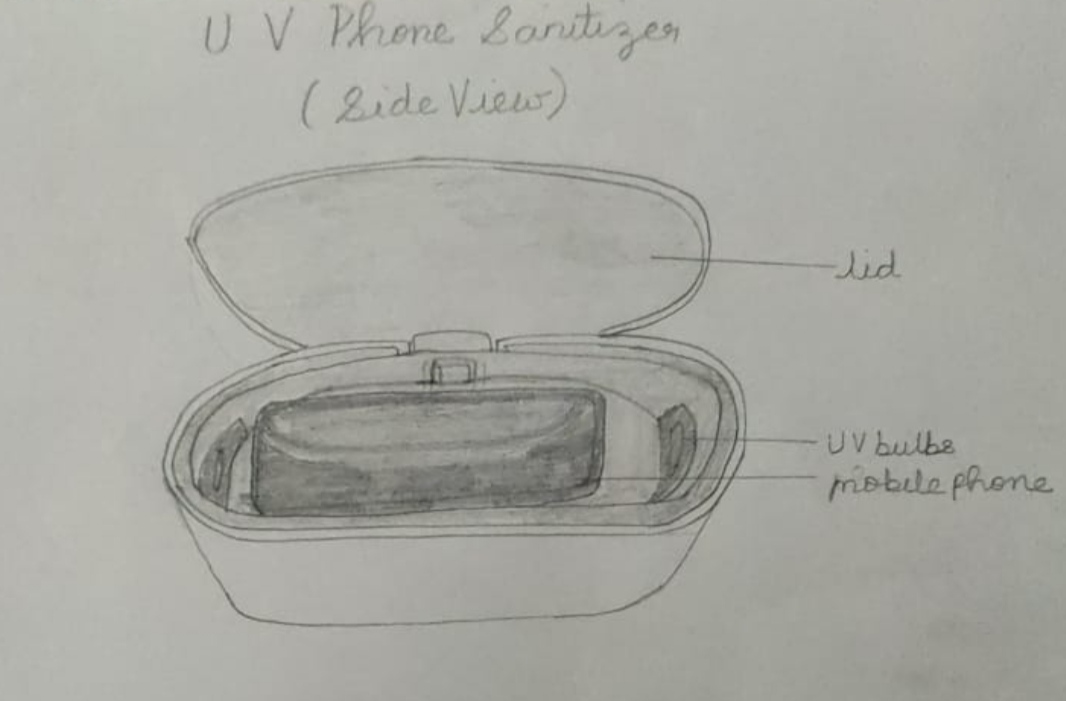 UV Phone Sanitizer
(Side View)
lid
UV bulbs
mobile phone